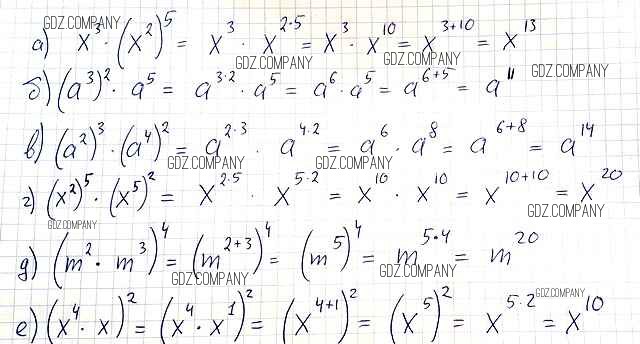 GDZ.COMPANY
а) x³ · (x²)⁵ = x³ · x^{2·5} = x³ · x^{10} = x^{3+10} = x^{13}
GDZ.COMPANY GDZ.COMPANY
б) (a³)² · a⁵ = a^{3·2} · a⁵ = a⁶ · a⁵ = a^{6+5} = a^{11} GDZ.COMPANY
в) (a²)³ · (a⁴)² = a^{2·3} · a^{4·2} = a⁶ · a⁸ = a^{6+8} = a^{14}
GDZ.COMPANY GDZ.COMPANY
г) (x²)⁵ · (x⁵)² = x^{2·5} · x^{5·2} = x^{10} · x^{10} = x^{10+10} = x^{20}
GDZ.COMPANY GDZ.COMPANY
д) (m² · m³)⁴ = (m^{2+3})⁴ = (m⁵)⁴ = m^{5·4} = m^{20}
GDZ.COMPANY GDZ.COMPANY
е) (x⁴ · x)² = (x⁴ · x¹)² = (x^{4+1})² = (x⁵)² = x^{5·2} = x^{10}
GDZ.COMPANY